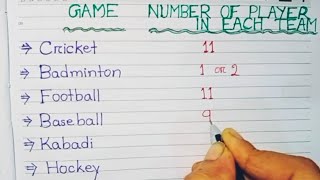 GAME NUMBER OF PLAYER
IN EACH TEAM
⇒ Cricket 11
⇒ Badminton 1 or 2
⇒ Football 11
⇒ Baseball 9
⇒ Kabadi
⇒ Hockey